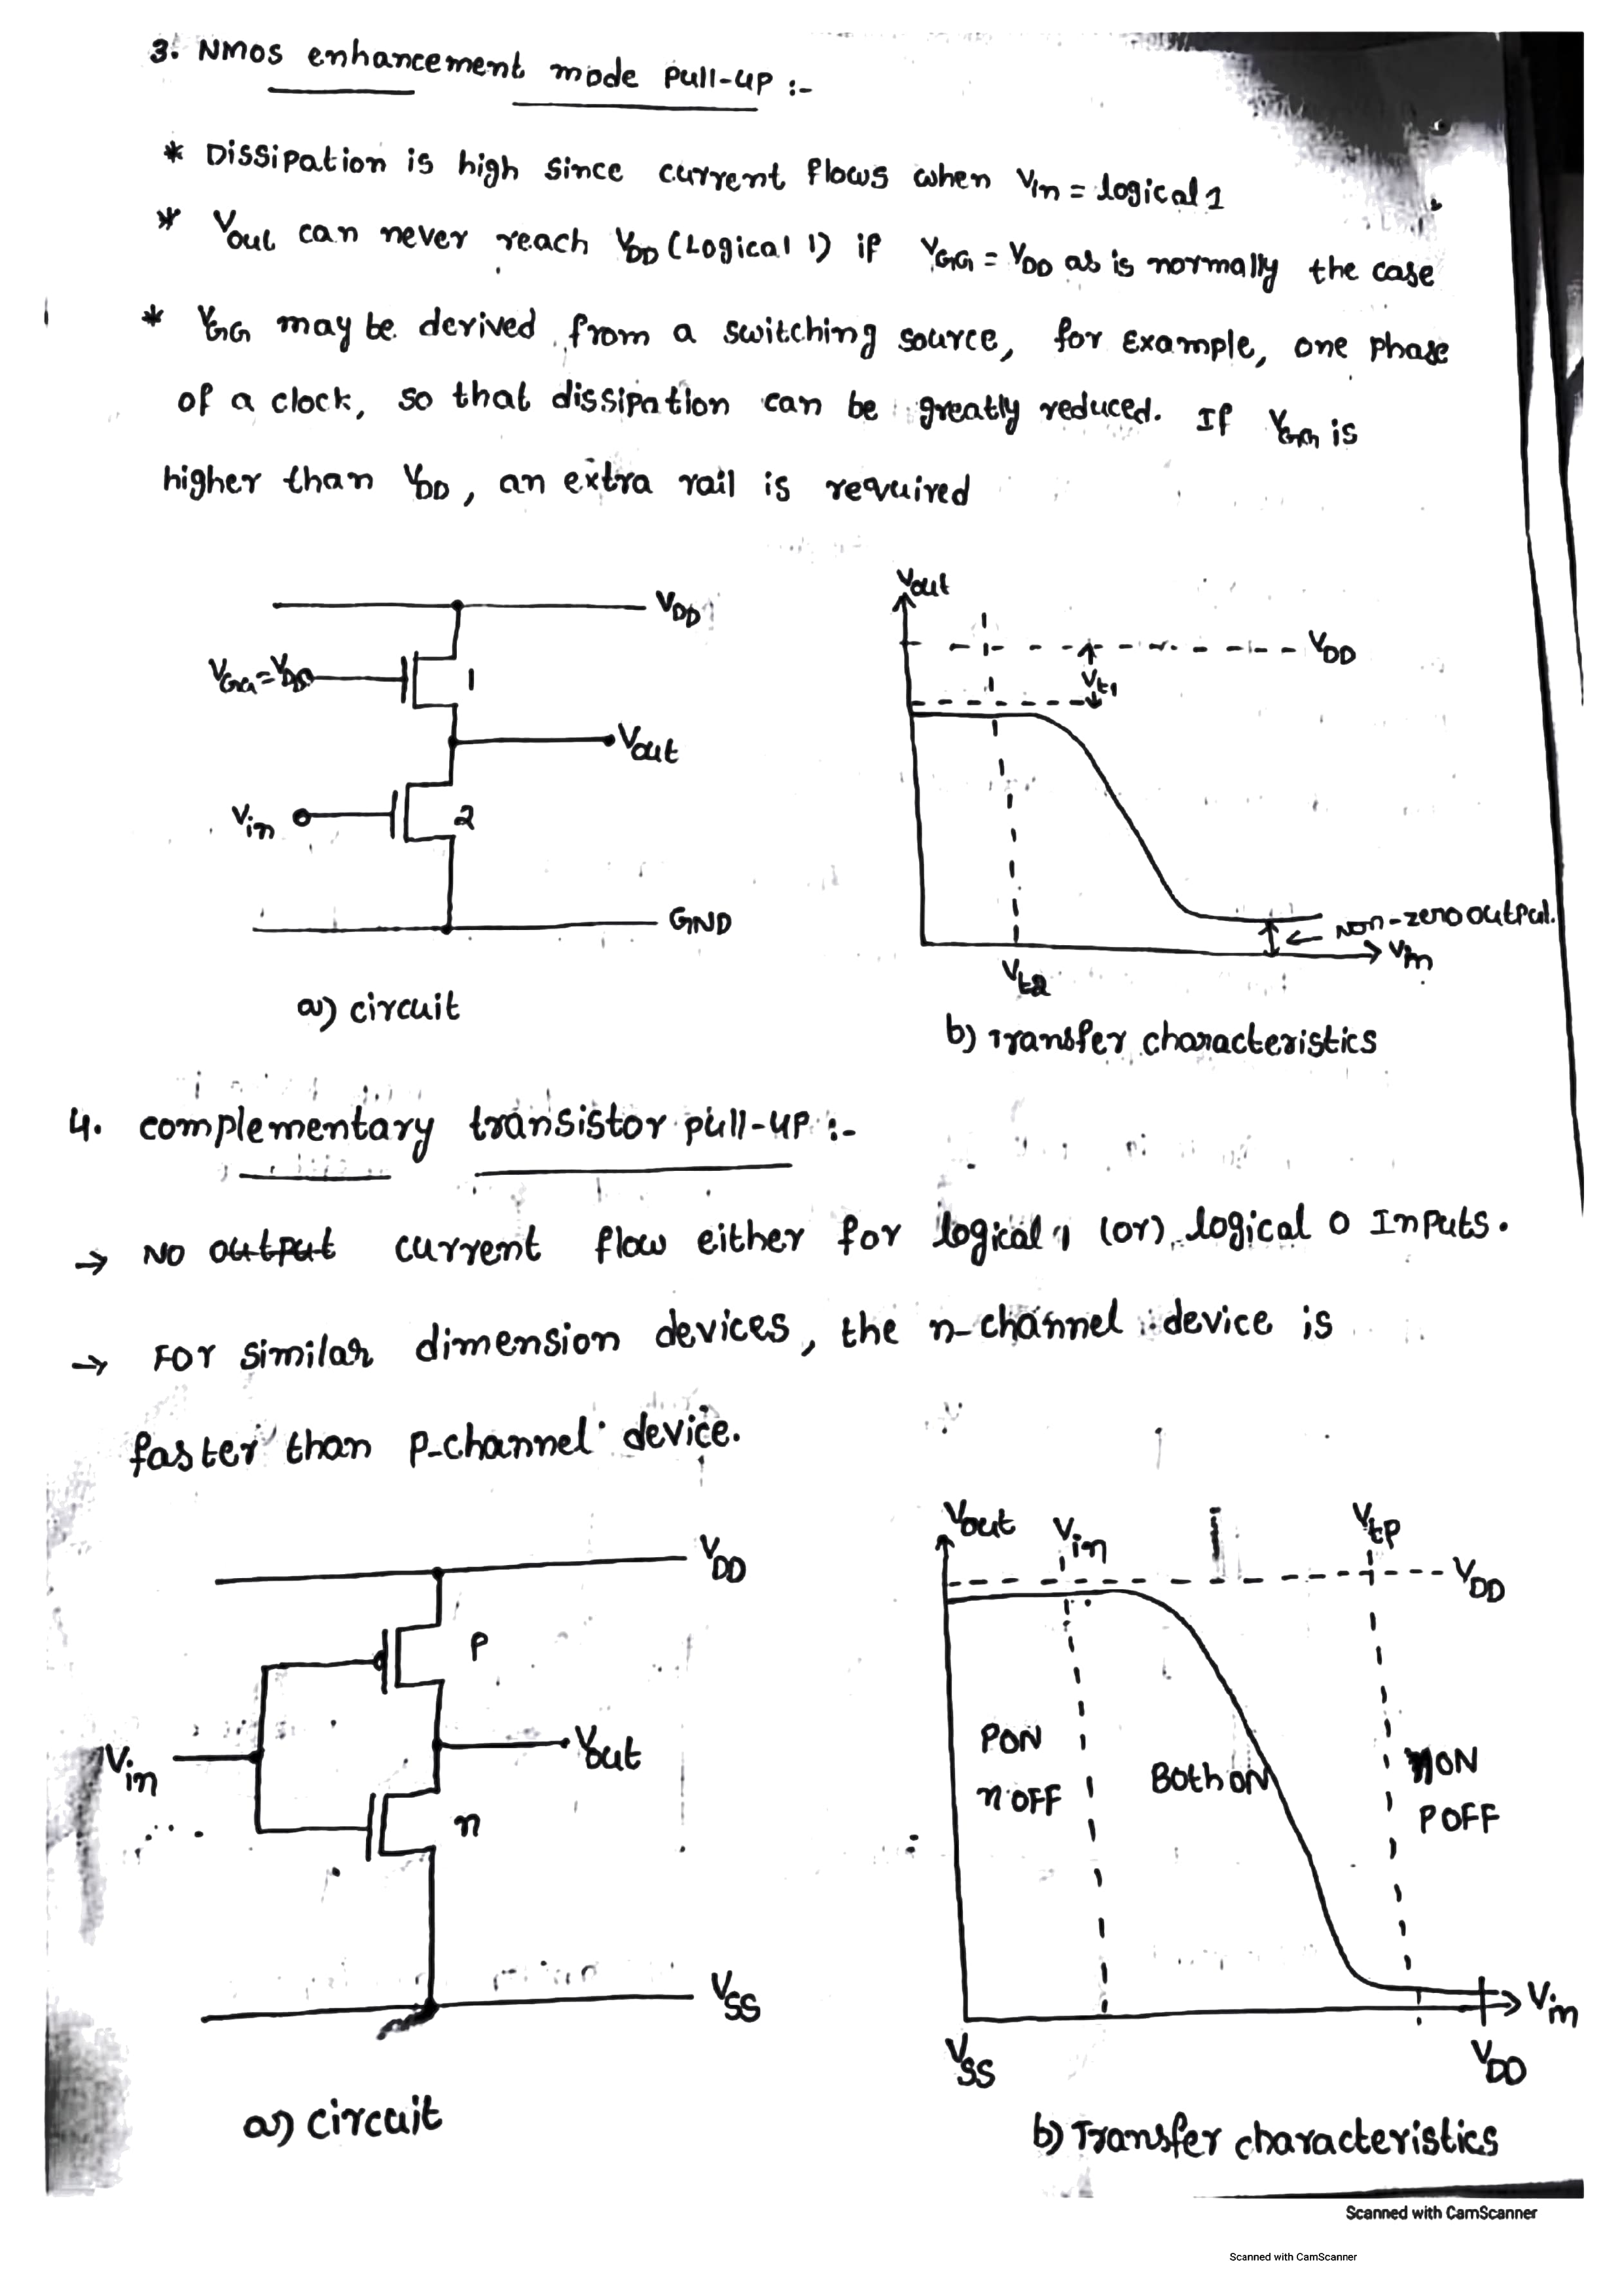 3. NMOS enhancement mode Pull-up :-
* Dissipation is high since current flows when Vin = logical 1
* Vout can never reach VDD (Logical 1) if VGG = VDD as is normally the case
* VGG may be derived from a switching source, for example, one phase
of a clock, so that dissipation can be greatly reduced. If VGG is
higher than VDD, an extra rail is required
VDD
VGG = VDD
1
Vout
Vin
2
GND
a) circuit
Vout
VDD
Vt1
Non-zero output.
Vin
Vt2
b) Transfer characteristics
4. complementary transistor pull-up :-
→ No output current flow either for logical 1 (or) logical 0 Inputs.
→ For similar dimension devices, the n-channel device is
faster than p-channel device.
VDD
P
Vin
Vout
n
VSS
a) circuit
Vout
Vin
Vtp
VDD
PON
n OFF
Both ON
nON
POFF
Vin
VSS
VDD
b) Transfer characteristics
Scanned with CamScanner
Scanned with CamScanner